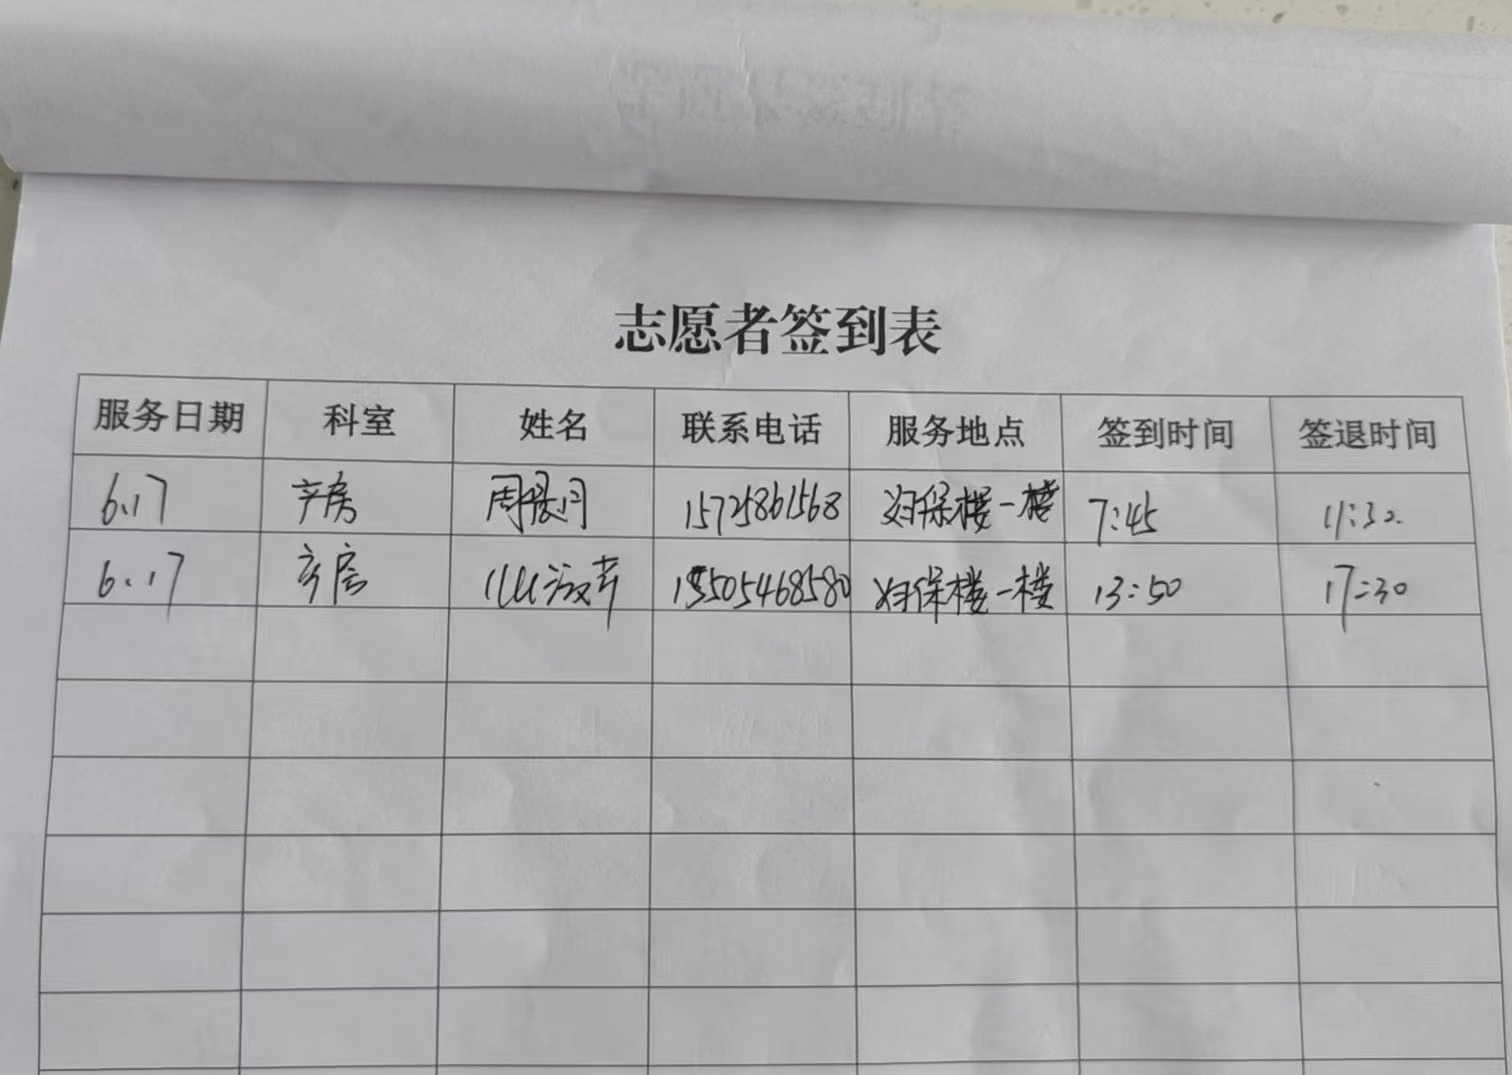 志愿者签到表
服务日期 科室 姓名 联系电话 服务地点 签到时间 签退时间
6.17 产房 周晨月 15725861568 妇保楼一楼 7:45 11:30
6.17 产房 妇保楼一楼 13:50 17:30